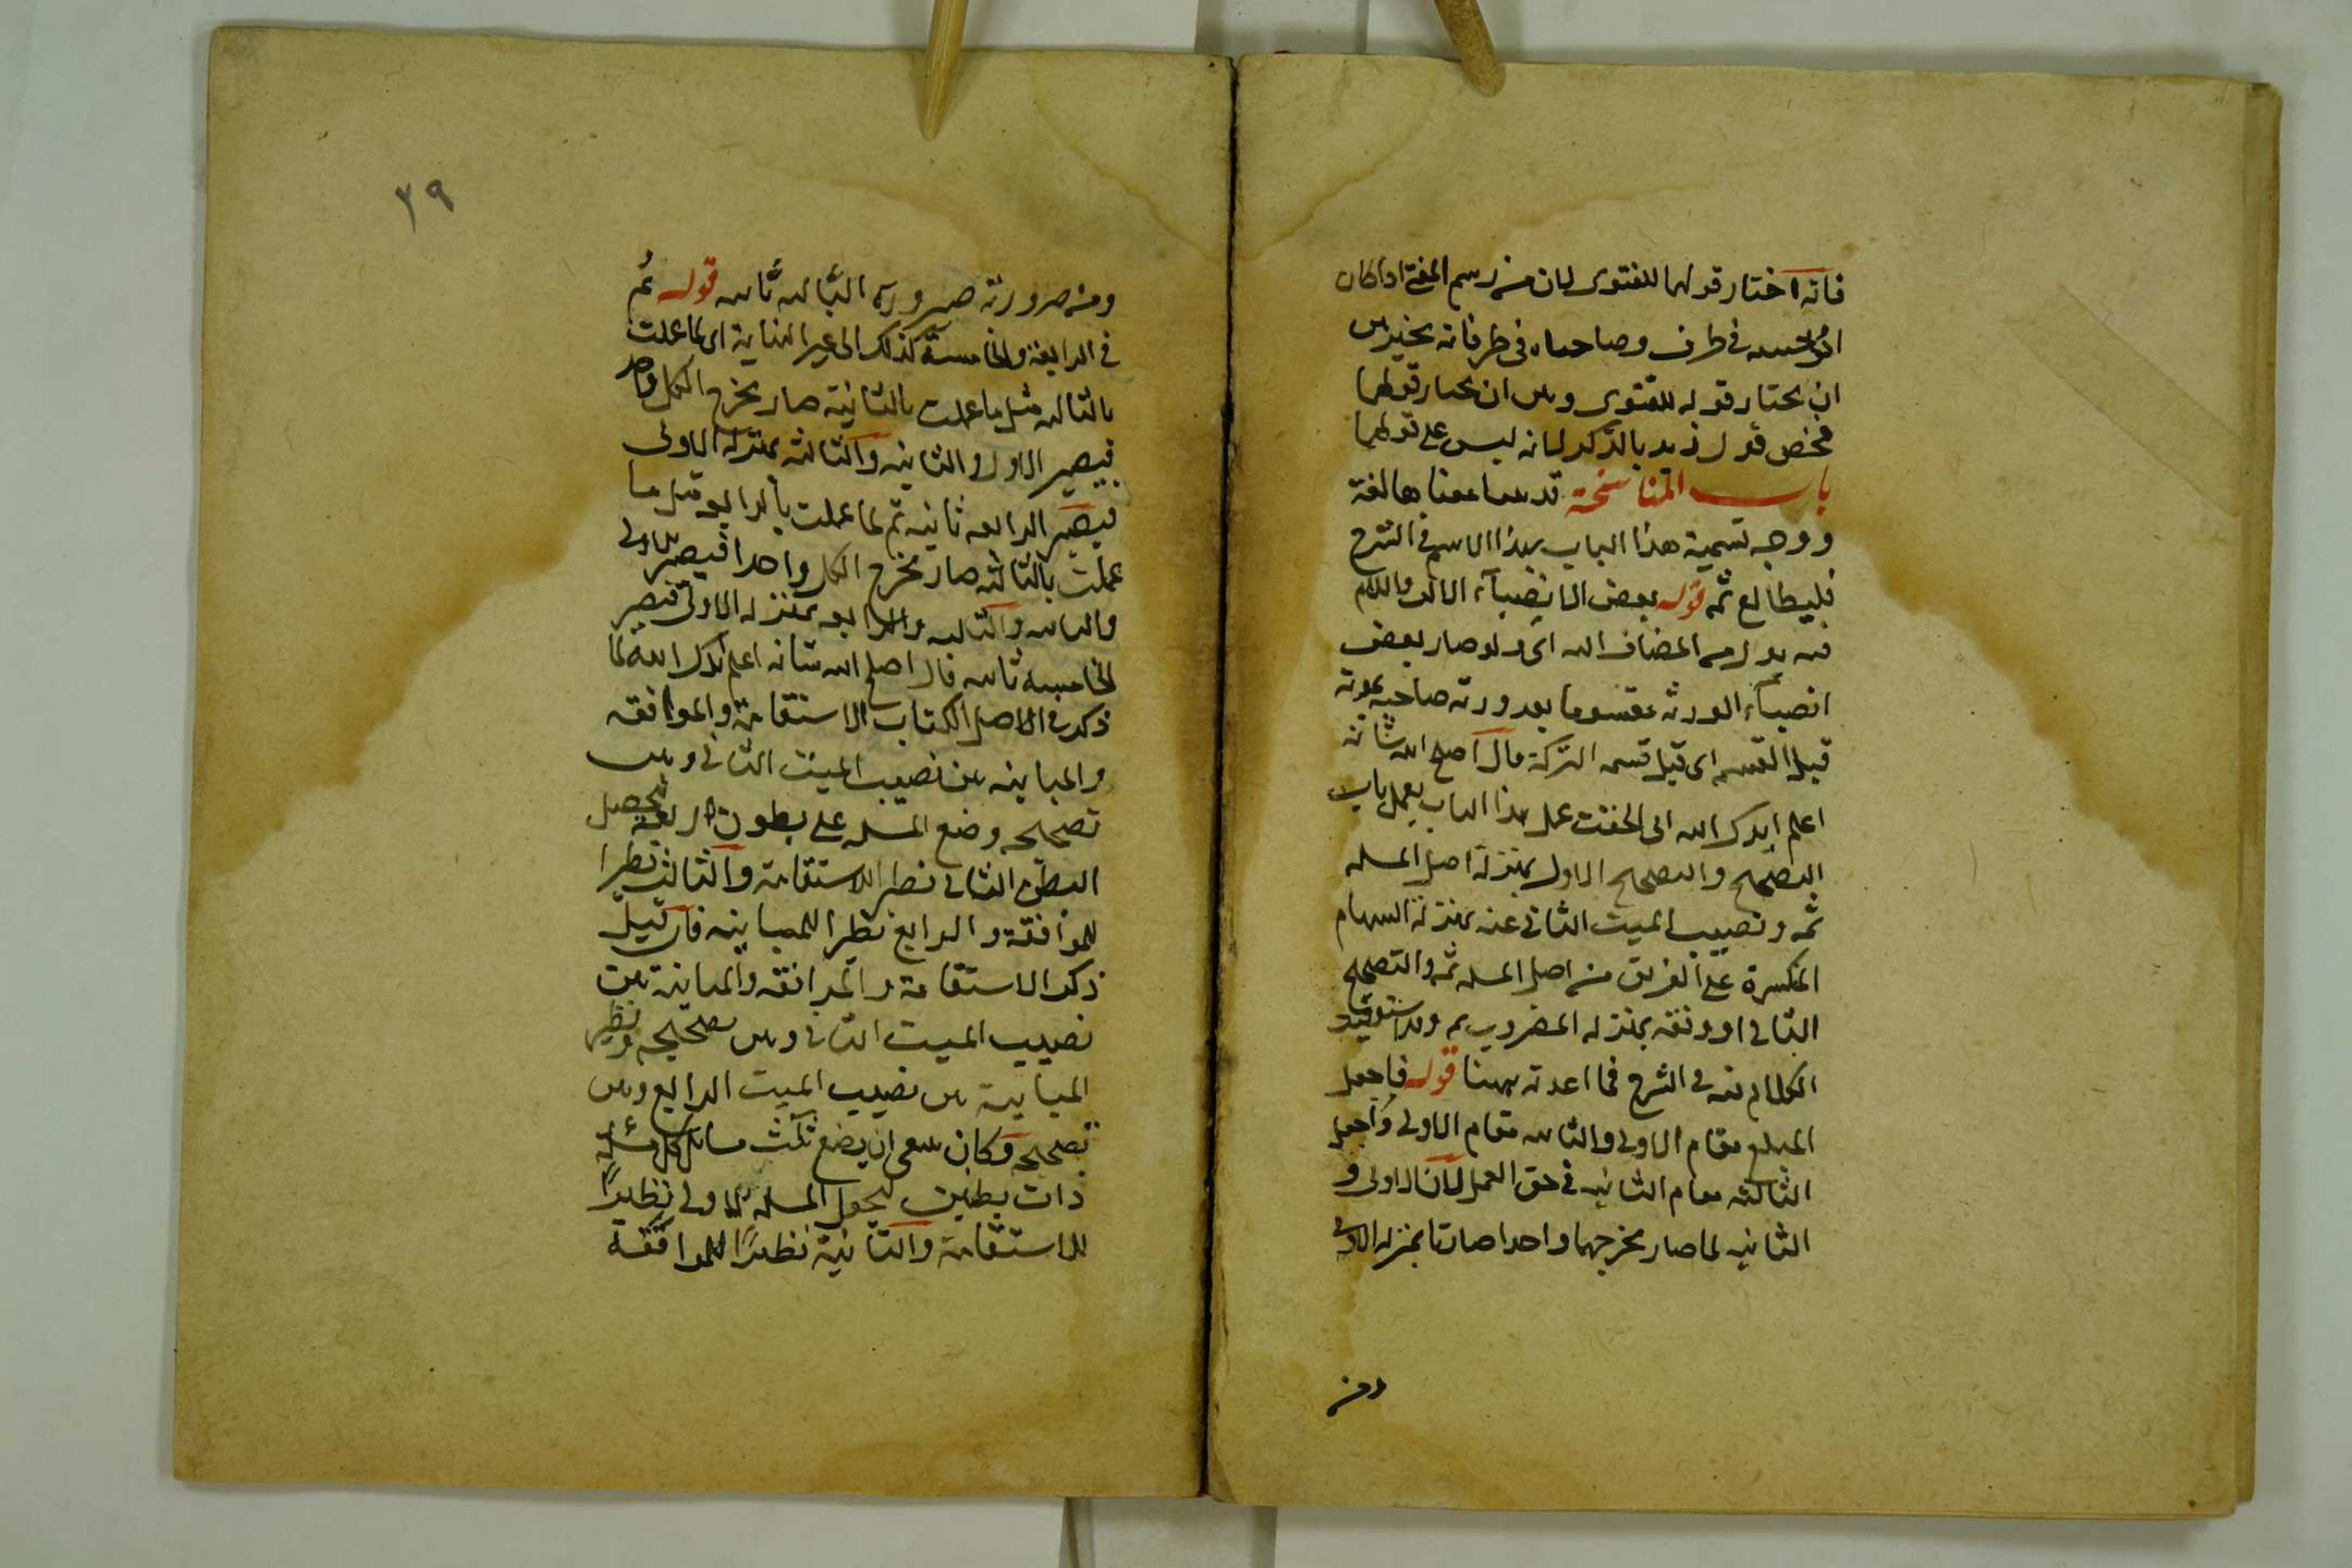 فانه اختار قولهما للفتوى لان من رسم المفتى اذا كان
ابو حنيفه فى طرف وصاحباه فى طرف فانه يخير بين
ان يختار قوله للفتوى وبين ان يختار قولهما
فخص قول زيد بالذكر لانه ليس على قولهما
باب المناسخة قد معناها لغة
ووجه تسمية هذا الباب بهذا الاسم فى الشرح
فليطالع ثمه قوله بعض الانصباء الالف واللام
فيه بدل من المضاف اليه اى ولو صار بعض
انصباء الورثه مقسوما بعد ورثة صاحبه بموته
قبل القسمه اى قبل قسمه التركة قال اصلح الله شانه
اعلم ايدك الله انى الحقت عمل هذا الباب بعمل باب
التصحيح والتصحيح الاول بمنزلة اصل المسله
ثمه ونصيب الميت الثانى عنه بمنزلة السهام
المنكسرة على الفريق من اصل المسله ثمه والتصحيح
الثانى او وفقه بمنزله المضروب ثمه وقد استوفيت
الكلام فيه فى الشرح فما اعدته ههنا قوله فاجعل
المبلغ مقام الاولى والثانيه مقام الاولى واجعل
الثالثه مقام الثانيه فى حق العمل لان الاولى و
الثانيه لما صار مخرجهما واحدا صارتا بمنزله الاولى
ومن
٣٩
ومن ضرورته صيرورة الثالثه ثانيه قوله ثم
فى الرابعة والخامسة كذلك الى غير النهاية اى لما عملت
بالثالثه مثل ما عملت بالثانية صار مخرج الكل واحدا
فيصير الاولى والثانيه والثالثه بمنزله الاولى
فيصير الرابعه ثانيه ثم لما عملت بالرابعه مثل ما
عملت بالثالثه صار مخرج الكل واحدا فيصير الاولى
والثانيه والثالثه والرابعه بمنزله الاولى فيصير
الخامسه ثانيه قال اصلح الله شانه اعلم ايدك الله لما
ذكر فى الاصل الكتاب الاستقامة والموافقه
والمباينه بين نصيب الميت الثانى وبين
تصحيحه وضع المسله على بطون اربعة فحصل
البطن الثانى نظيرا للاستقامة والثالث نظيرا
للموافقة والرابع نظيرا للمباينه فان قيل
ذكر الاستقامة والموافقه والمباينة بين
نصيب الميت الثانى وبين تصحيحه ونظير
المباينة بين نصيب الميت الرابع وبين
تصحيحه فكان ينبغى ان يضع ثلث مسائل كل مسئلة
ذات بطنين ليجعل المسله الاولى نظيرًا
للاستقامة والثانية نظيرًا للموافقة